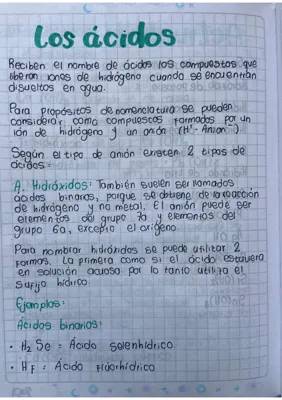 Los ácidos
Reciben el nombre de ácidos los compuestos que
liberan iones de hidrógeno cuando se encuentran
disueltos en agua.
Para propósitos de nomenclatura se pueden
considerar, como compuestos formados por un
ión de hidrógeno y un anión (H+ Anion-)
Según el tipo de anión existen 2 tipos de
ácidos:
A. Hidrácidos: También suelen ser llamados
ácidos binarios, porque se obtiene de la reacción
de hidrógeno y no metal. El anión puede ser
elementos del grupo 7a y elementos del
grupo 6a, excepto el origeno
Para nombrar hidrácidos se puede utilizar 2
formas. La primera como si el ácido estuviera
en solución acuosa por lo tanto utiliza el
sufijo hídrico
Ejemplos:
Ácidos binarios:
• H2 Se = Ácido selenhídrico
• H F = Ácido Fluorhídrico